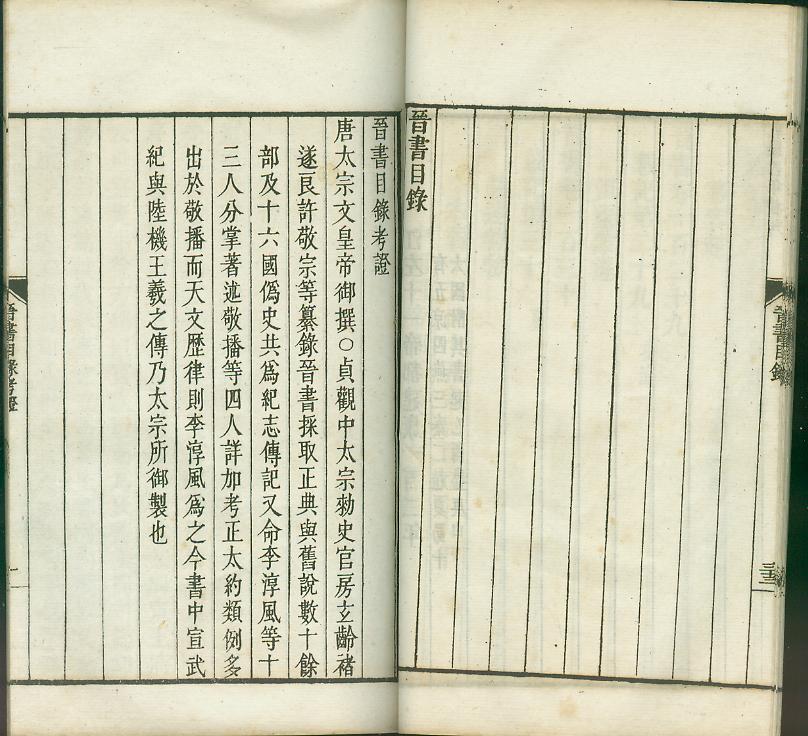 晉書目錄
晉書目錄
三十三
晉書目錄考證
唐太宗文皇帝御撰○貞觀中太宗勑史官房玄齡褚
遂良許敬宗等纂錄晉書採取正典與舊說數十餘
部及十六國僞史共爲紀志傳記又命李淳風等十
三人分掌著述敬播等四人詳加考正太約類例多
出於敬播而天文歷律則李淳風爲之今書中宣武
紀與陸機王羲之傳乃太宗所御製也
晉書目錄考證
一